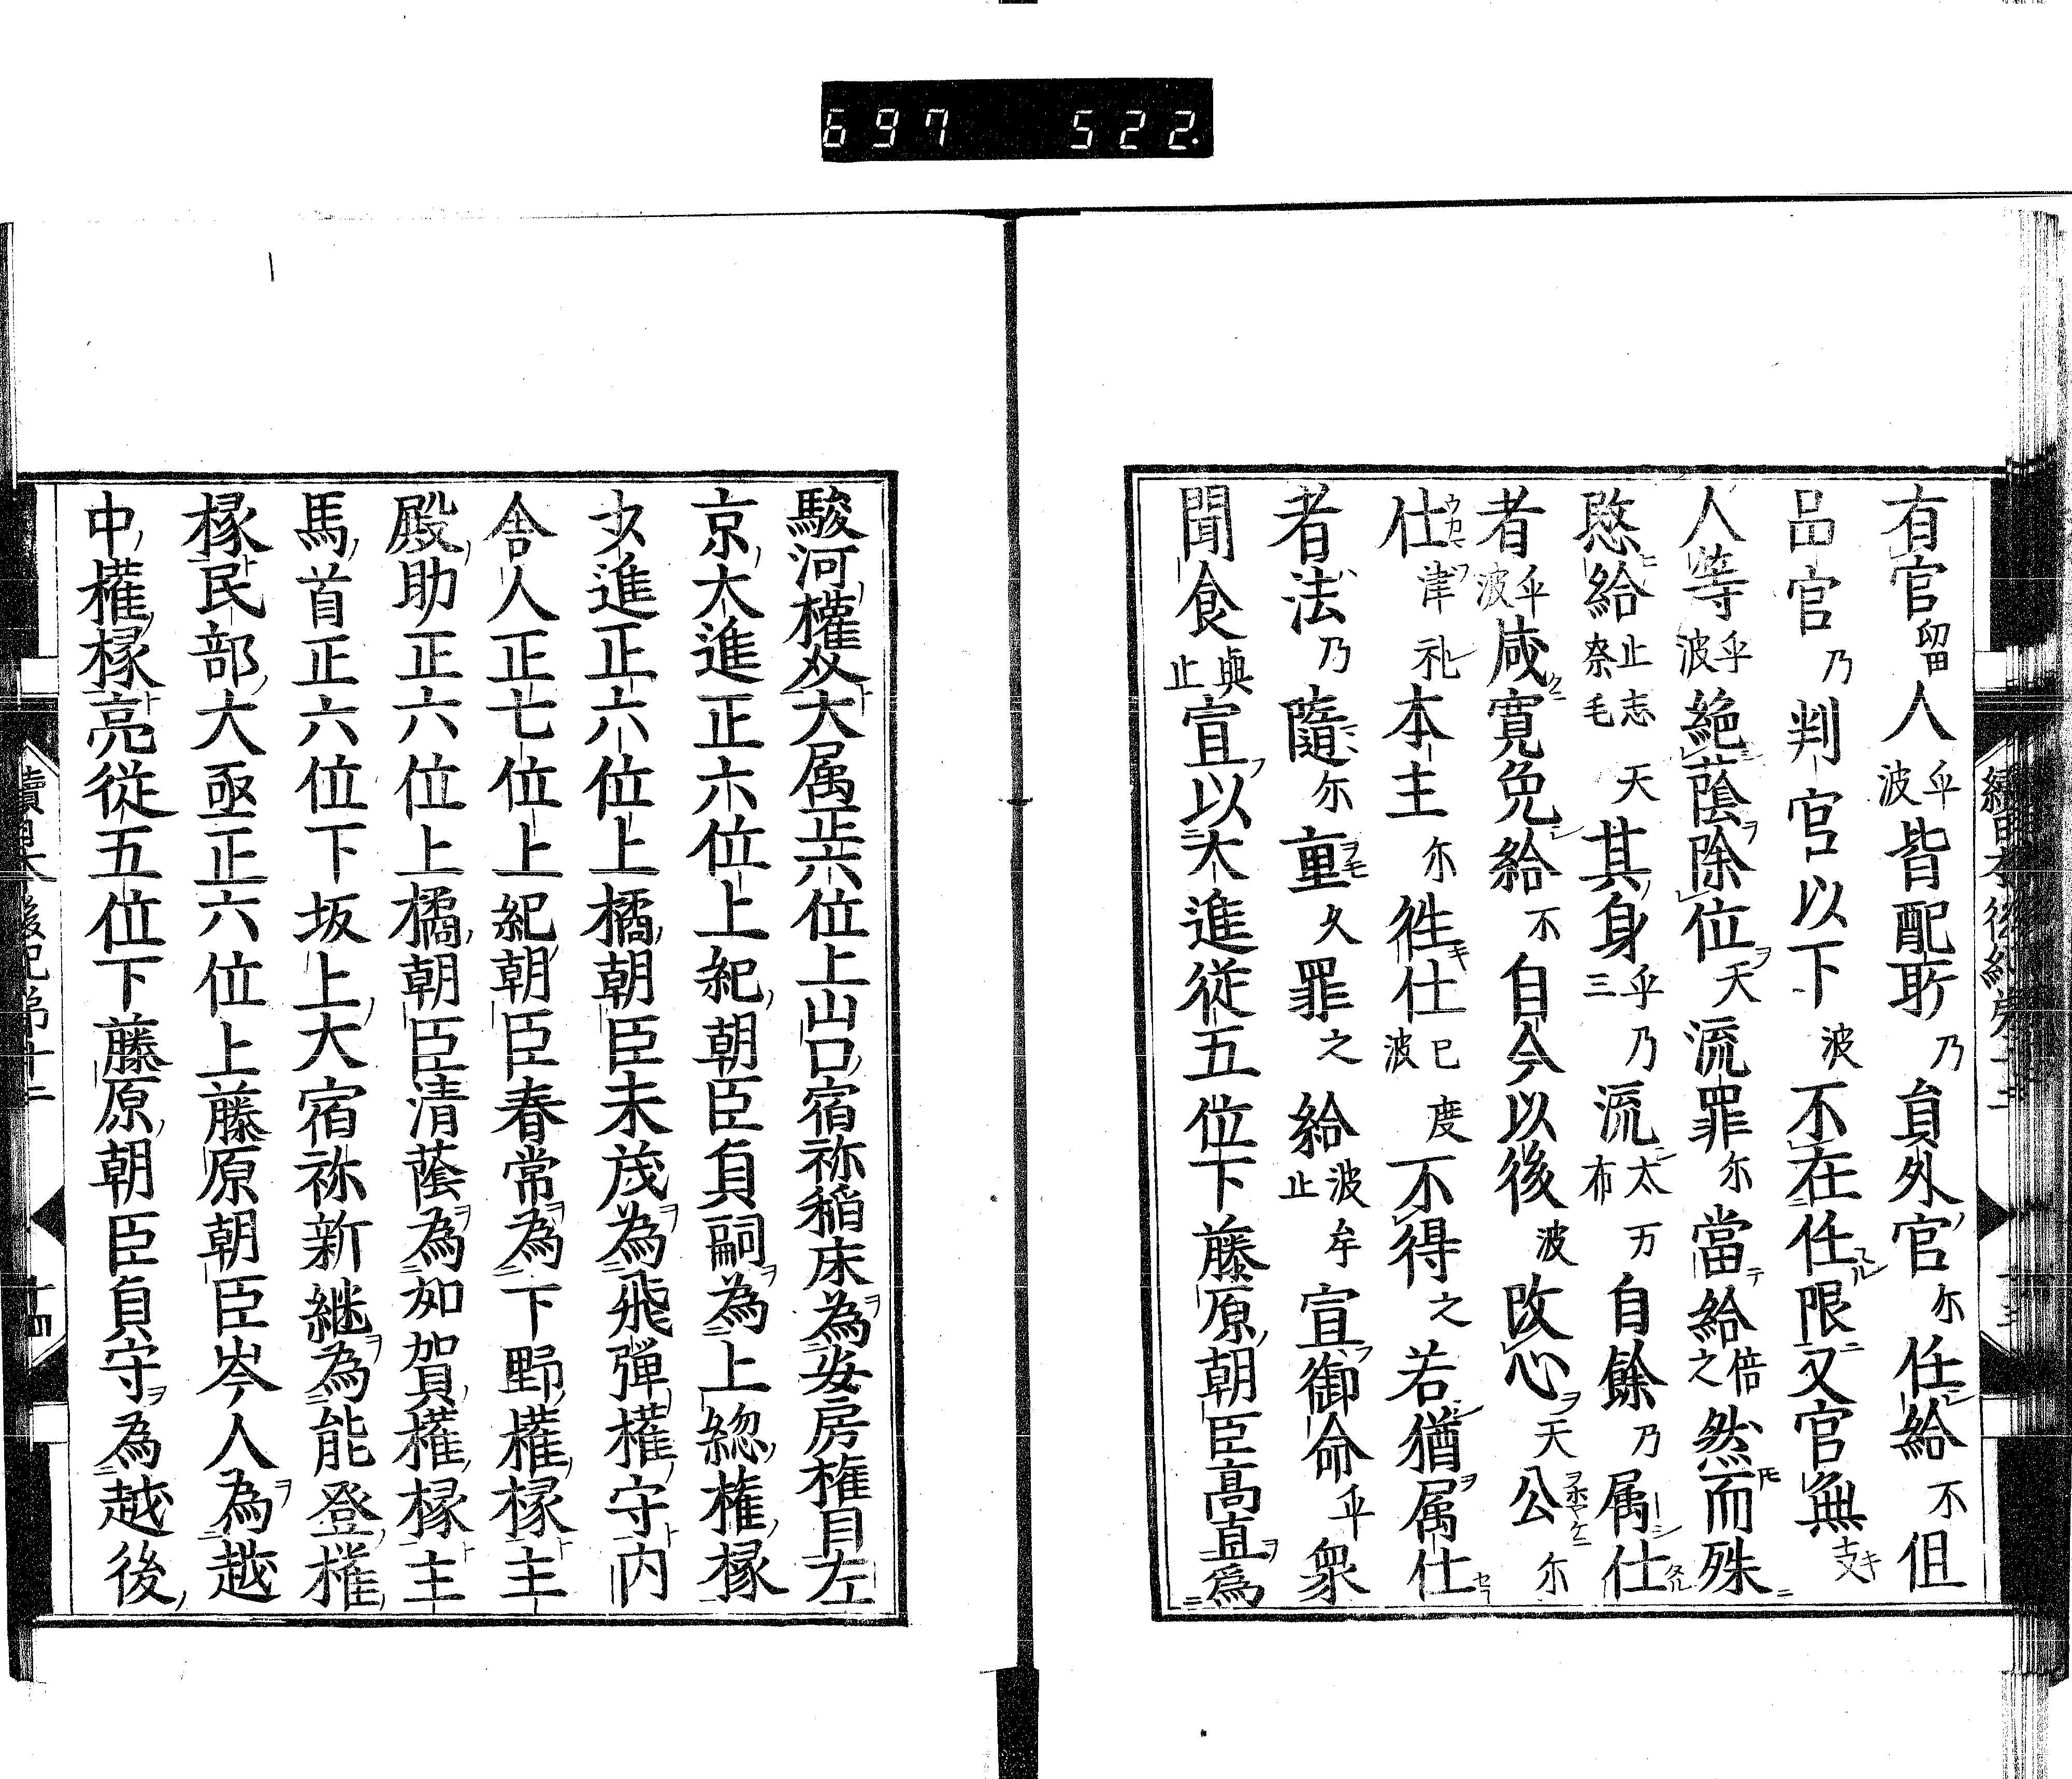 697 522.
有官留人乎波皆配所乃員外官尓任給不但
品官乃判官以下波不在任限又官無支
人等乎波絶蔭除位天流罪尓當給倍之然而殊
愍給止志奈毛天其身乎三乃流太布万自餘乃属仕
者乎波咸寛免給不自今以後波改心天公尓
仕津礼本主尓徃仕已波度不得之若猶属仕
者法乃隨尓重久罪之給波止牟宣御命乎衆
聞食與止宣以大進従五位下藤原朝臣高直為
駿河權介大属正六位上山口宿祢稲床為安房権目左
京大進正六位上紀朝臣貞嗣為上総權掾
少進正六位上橘朝臣未茂為飛彈權守内
舎人正七位上紀朝臣春常為下野權掾主
殿助正六位上橘朝臣清蔭為加賀權掾主
馬首正六位下坂上大宿祢新継為能登權
掾民部大亟正六位上藤原朝臣岑人為越
中權掾亮従五位下藤原朝臣貞守為越後
續日本後紀第十二
十四